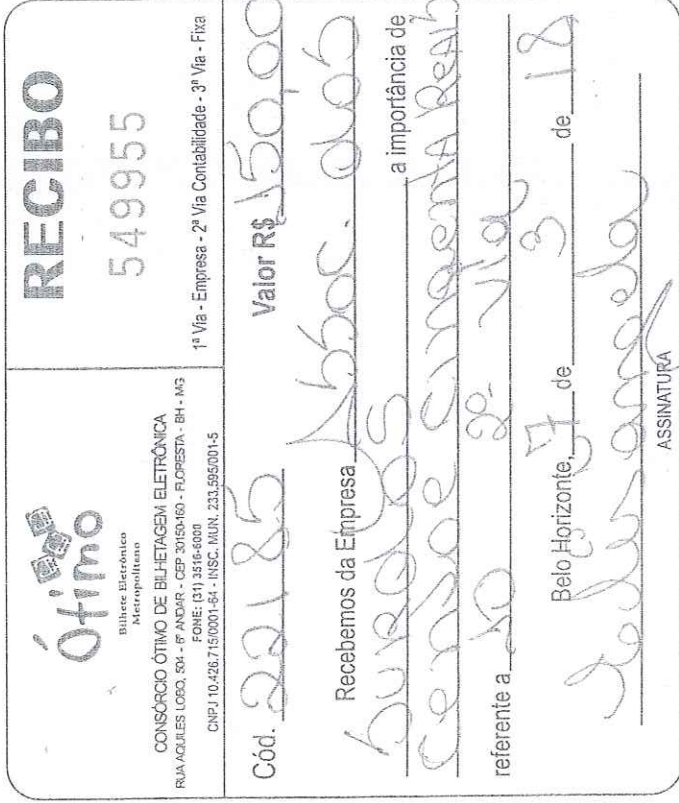 Ótimo
Bilhete Eletrônico
Metropolitano
CONSÓRCIO ÓTIMO DE BILHETAGEM ELETRÔNICA
RUA AQUILES LOBO, 504 - 6º ANDAR - CEP 30150-160 - FLORESTA - BH - MG
FONE: (31) 3516-6000
CNPJ 10.426.715/0001-64 - INSC. MUN. 233.595/001-5
RECIBO
549955
1ª Via - Empresa - 2ª Via Contabilidade - 3ª Via - Fixa
Cód. 22185 Valor R$ 150,00
Recebemos da Empresa Assoc. dos
surdos a importância de
cento e cinquenta Reais
referente a 10 2º via
Belo Horizonte, 7 de 3 de 18
ASSINATURA